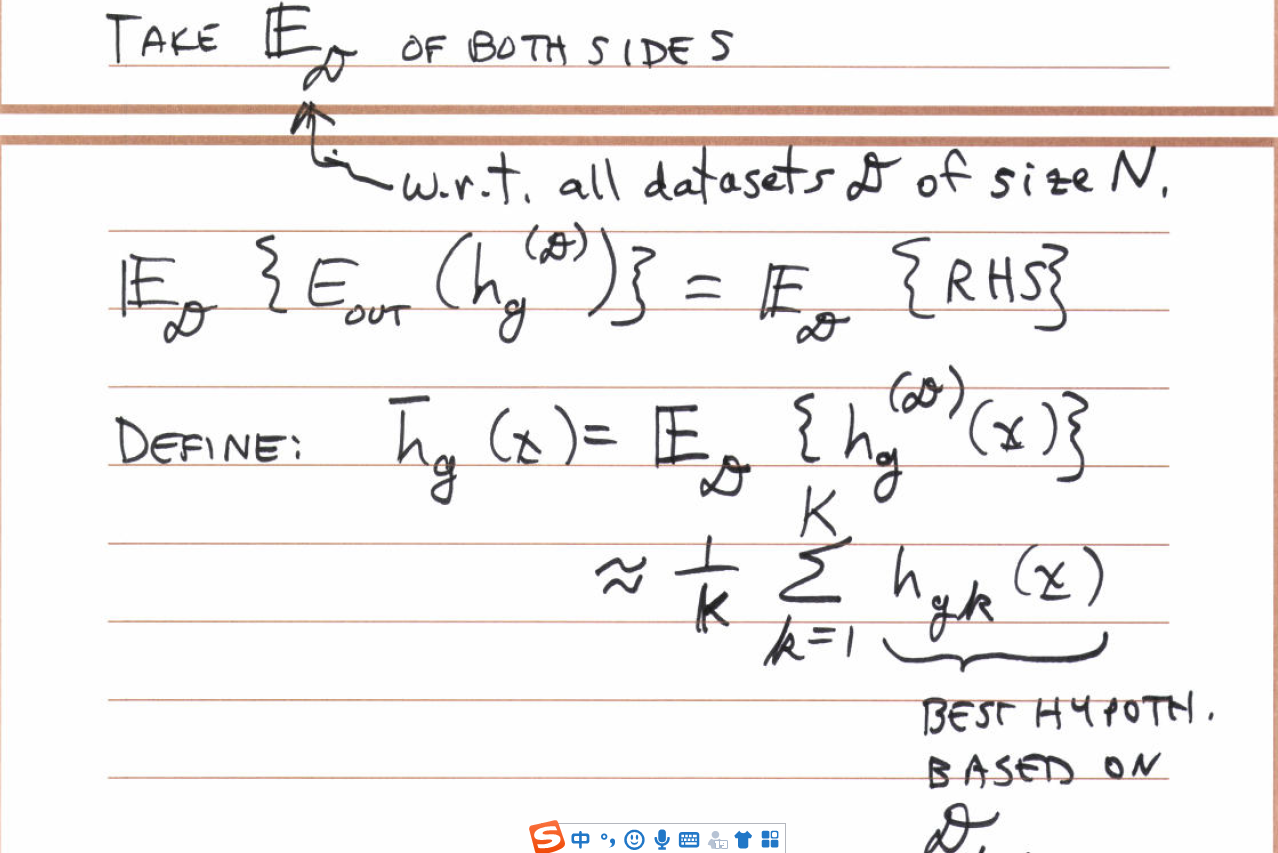 TAKE 𝔼_𝒟 OF BOTH SIDES
w.r.t. all datasets 𝒟 of size N.
𝔼_𝒟 {E_OUT (h_g^(𝒟))} = 𝔼_𝒟 {RHS}
DEFINE: h̄_g (x) = 𝔼_𝒟 {h_g^(𝒟) (x)}
≈ 1/K ∑_{k=1}^{K} h_{gk} (x)
BEST HYPOTH.
BASED ON
𝒟
中